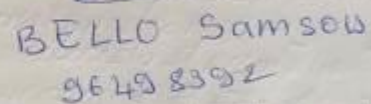 BELLO Samsou
96498392